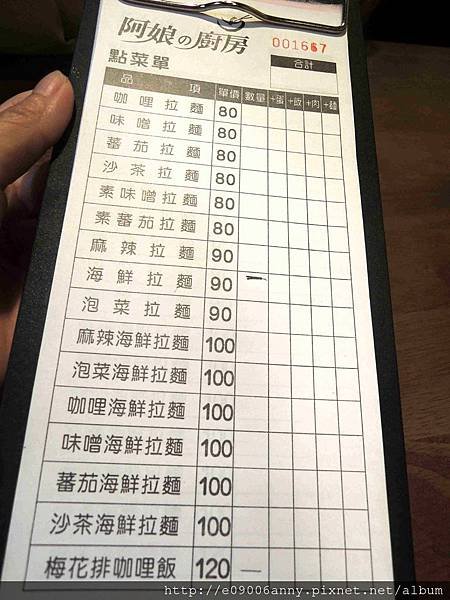 阿娘の廚房
001667
點菜單
合計
品項 單價 數量 +蛋 +飯 +肉 +麵
咖哩拉麵 80
味噌拉麵 80
蕃茄拉麵 80
沙茶拉麵 80
素味噌拉麵 80
素蕃茄拉麵 80
麻辣拉麵 90
海鮮拉麵 90 一
泡菜拉麵 90
麻辣海鮮拉麵 100
泡菜海鮮拉麵 100
咖哩海鮮拉麵 100
味噌海鮮拉麵 100
蕃茄海鮮拉麵 100
沙茶海鮮拉麵 100
梅花排咖哩飯 120 一
http://e09006anny.pixnet.net/album